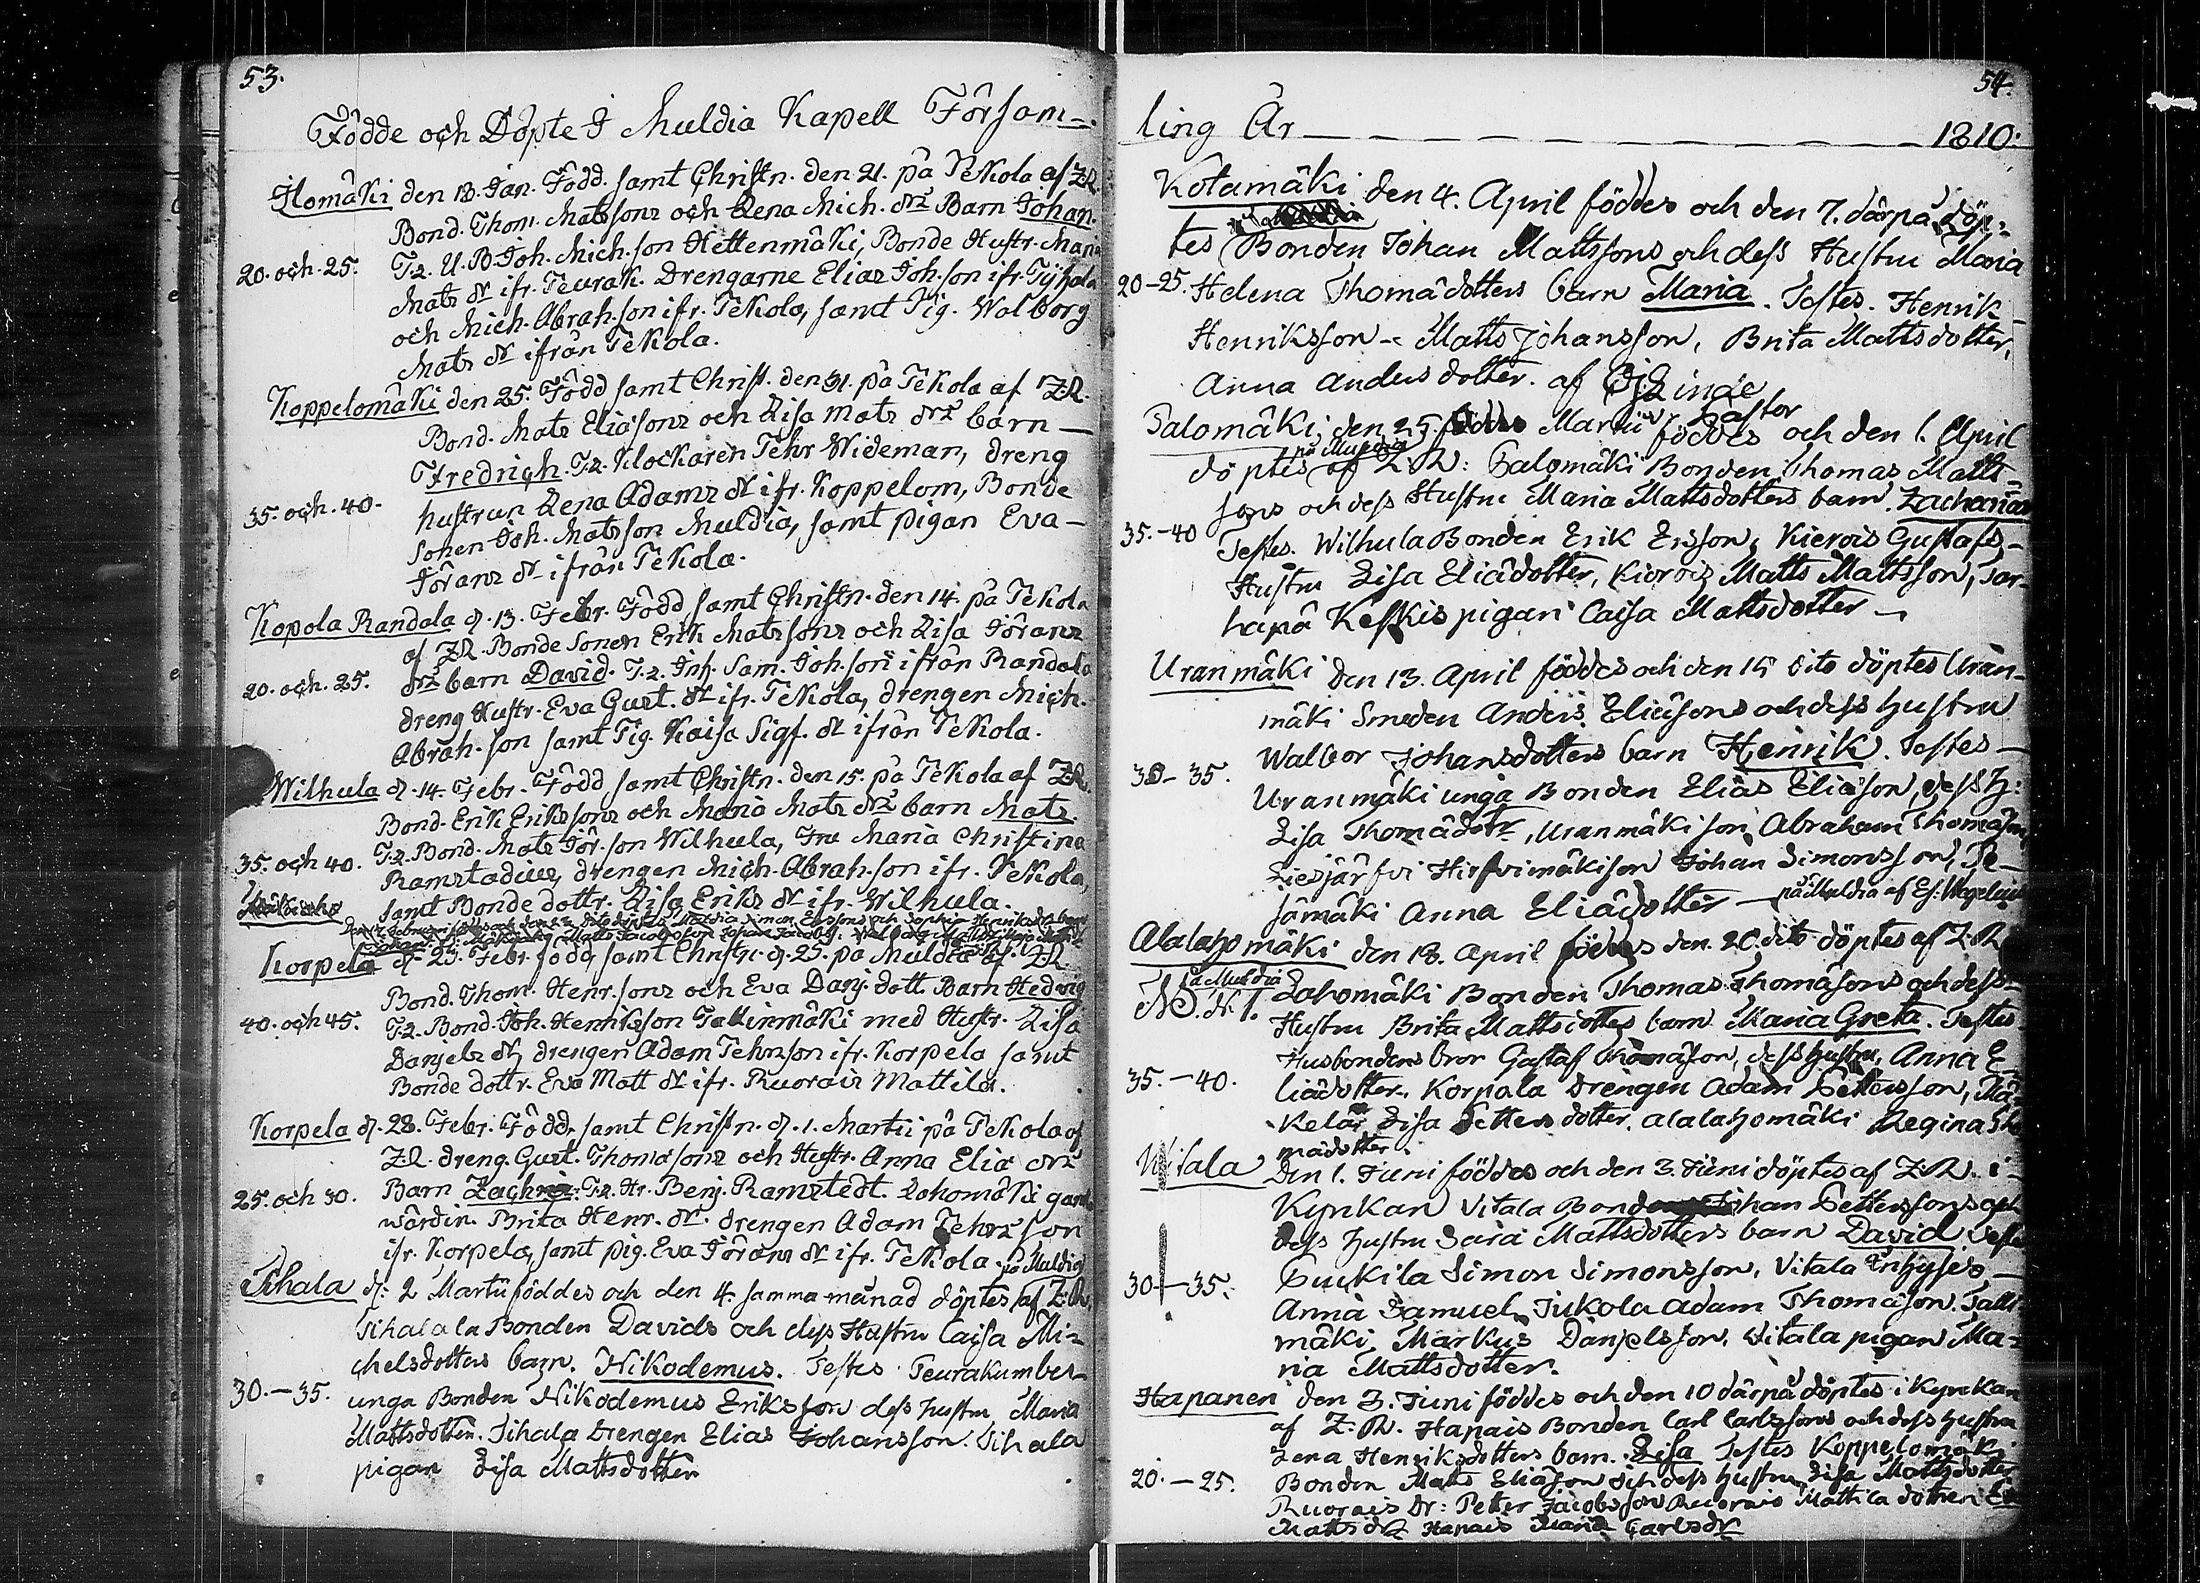 53.
Födde och Döpte I Muldia Kapell Försam-
Ilomäki den 18. Jan. Född. samt Christn. den 21. på Pekola af Z.R.
Bond. Thom. Matssons och Lena Mich. drs Barn Johan.
20. och. 25. T.2. U.B. Joh. Mich.son Hettenmäki, Bonde Hustr. Maria
Mats dr ifr. Peurak. Drengarne Elias Joh.son ifr.
och Mich. Abrah.son ifr. Pekola, samt Pig. Walborg
Mats dr ifrån Pekola.
Koppelomäki den 25. Född samt Christ. den 31. på Pekola af Z.R.
Bond. Mats Eliæsons och Lisa Mats drs barn
Fredrich. T.2. Klockaren Pehr Wideman, dreng
hustrun Lena Adams dr ifr. Koppelom, Bonde
35. och. 40. sonen Joh. Matsson Muldia, samt pigan Eva
Jörans dr ifrån Pekola.
Kopola Randala d. 13. Febr. Född samt Christn. den 14. på Pekola
af Z.R. Bonde Sonen Erik Matssons och Lisa Jörans
20. och. 25. drs barn David. T.2. Inh. Sam. Joh.son ifrån Randala
dreng Hustr. Eva Gust. dr ifr. Pekola, drengen Mich.
Abrah.son samt Pig. Kaisa Sigf. dr ifrån Pekola.
Wilhula d. 14. Febr. Född samt Christn. den 15. på Pekola af Z.R.
Bond. Erik Erikssons och Maria Mats drs barn Mats
35. och 40. T.2. Bond. Mats Jör.son Wilhula, Fru Maria Christina
Ramstadius, drengen Mich. Abrah.son ifr. Pekola,
samt Bonde dottr. Lisa Eriks dr ifr. Wilhula.
Korpela d. 23. Febr. född samt Christn. d. 25. på Muldia af Z.R.
Bond. Thom. Henr.sons och Eva Danj. dott. Barn Hedvig
40. och 45. T.2. Bond. Joh. Henriksson Tallinmäki med Hustr. Lisa
Danjels dr, drengen Adam Pehrsson ifr. Korpela samt
Bonde dottr. Eva Matt dr ifr. Ruorais Mattila.
Korpela d. 28. Febr. Född samt Christn. d. 1. Martii på Pekola af
Z.R. dreng. Gust. Thomæsons och Hustr. Anna Eliæ drs
25. och 30. Barn Zachris. T.2. Hr. Benj. Ramstedt. Lahomäki gam
wärdin. Brita Henr. dr. drengen Adam Pehrsson
ifr. Korpela, samt pig. Eva Jörans dr ifr. Pekola.
på Muldia
Tihala d: 2 Martii föddes och den 4. samma månad döptes af Z.R.
Tihalala Bonden Davids och dess Hustru Caisa Mi-
chelsdotters barn. Nikodemus. Testes Peurakumbus
30.-35. unga Bonden Nikodemus Eriksson dess hustru Maria
Mattsdotter. Tihala Drengen Elias Johansson. Tihala
pigan Lisa Mattsdotter
54.
ling År 1810.
Kotamäki den 4. April föddes och den 7. därpå döp-
tes Bonden Johan Mattssons och dess Hustru Maria
20-25. Helena Thomædotters barn Maria. Testes. Henrik
Henriksson - Matts Johansson, Brita Mattsdotter,
Anna Andersdotter. af
Pastor
Salomäki den 25. Martii föddes och den 1. April
på Muldia
döptes af Z.R: Salomäki Bonden Thomas Matt-
sons och dess Hustru Maria Mattsdotters barn. Zacharias
35.-40 Testes. Wilhula Bonden Erik Ersson, Kierois Gustafs
Hustru Lisa Eliædotter, Kierois Matts Mattsson, Tar-
hapä Keskis pigan Caisa Mattsdotter
Uranmäki den 13. April föddes och den 15 dito döptes Uran-
mäki Smeden Anders Eliæsons och dess hustru
Walbor Johansdotters barn Henrik. Testes
30-35. Uranmäki unga Bonden Elias Eliæson, dess h:
Lisa Thomædotr, Uranmäki son Abraham Thomæson
Liesjärfvi Hirfvimäkison Johan Simonsson, Pe-
jämäki Anna Eliædotter
på Muldia af
Alalahomäki den 18. April föddes den 20. dito döptes af Z.R.
på Muldia
Lahomäki Bonden Thomas Thomæsons och dess
N.S. N. 1. Hustru Brita Mattsdotters barn Maria Greta. Testes
Husbondens bror Gustaf Thomæson, dess hustru, Anna E-
35.-40. liædotter. Korpala Drengen Adam Pettersson, Mä-
kelä Lisa Pettersdotter. Alalahomäki Regina Tho
mædotter.
Witala den 1. Junii föddes och den 3. Junii döptes af Z.R. i
Kyrkan Vitala Bonden Johan Petterssons och
dess hustru Sara Mattsdotters barn David Teste
30-35. Puckila Simon Simonsson, Vitala Inhyses
Anna Samuels. Jukola Adam Thomæson. Talli
mäki Markus Danjelsson. Witala pigan Ma-
ria Mattsdotter.
Hapanen den 3. Junii föddes och den 10 därpå döptes i Kyrkan
af Z.R. Hapais Bonden Carl Carlssons och dess hustru
Lena Henriksdotters barn. Lisa Testes Koppelomäk
20.-25. Bonden Matts Eliæson och dess hustru Lisa Mattsdotter
Ruorais Dr: Petter Jacobsson Ruorais Mattila dottren Eva
Mattsdr Hapais Maria Carlsdr